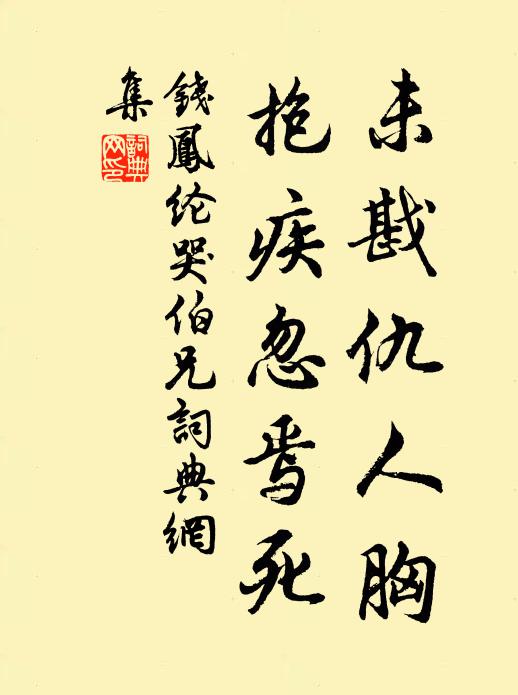 未戡仇人胸
抱疾忽焉死
錢鳳纶哭伯兄詞典網
集
詞典
网印